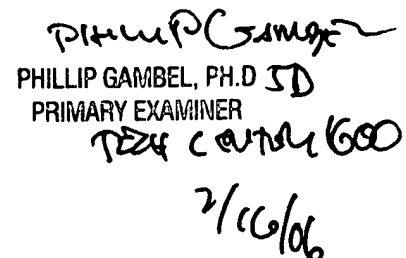 Phillip Gambel
PHILLIP GAMBEL, PH.D JD
PRIMARY EXAMINER
TECH CENTER 1600
2/16/06